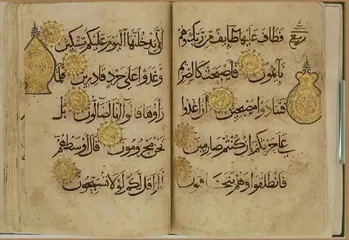 فطاف عليها طايف من ربك وهم
نايمون فاصبحت كالصريم
فتنادوا مصبحين ان اغدوا
على حرثكم ان كنتم صارمين
فانطلقوا وهم يتخافتون
لا يدخلنها اليوم عليكم مسكين
وغدوا على حرد قادرين فلما
راوها قالوا انا لضالون بل
نحن محرومون قال اوسطهم
الم اقل لكم لولا تسبحون